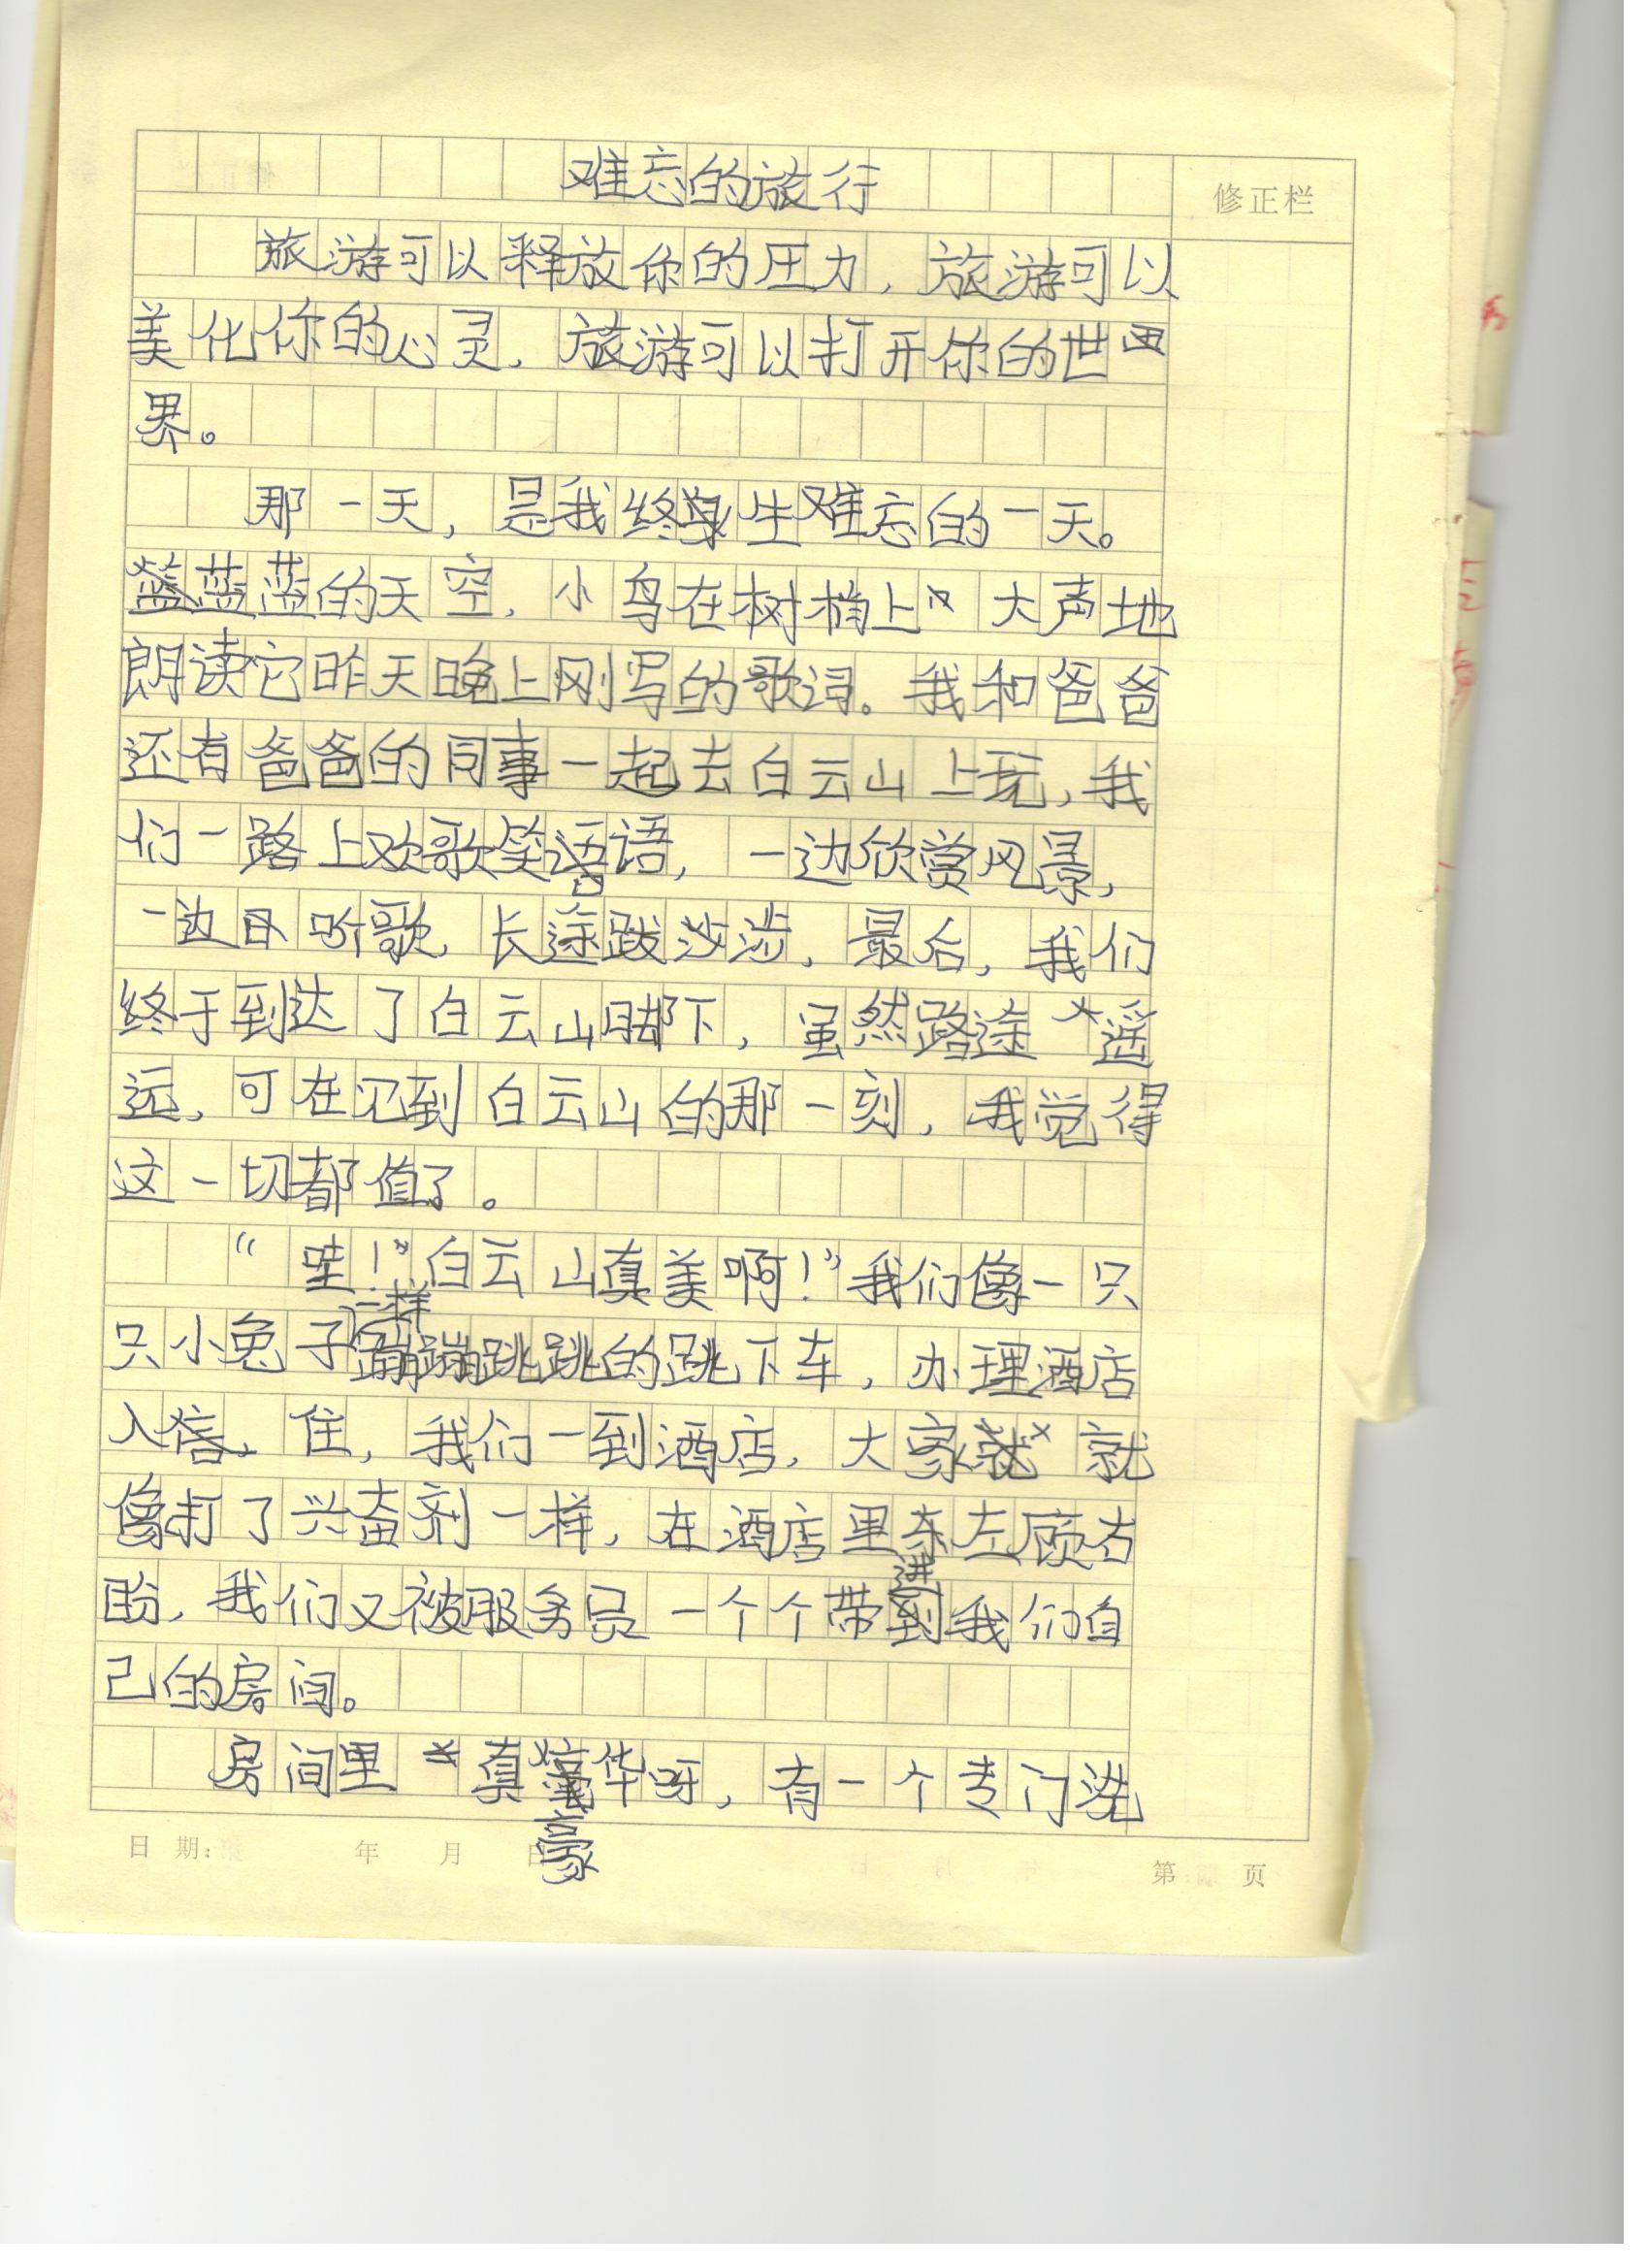 难忘的旅行
修正栏
旅游可以释放你的压力，旅游可以
美化你的心灵，旅游可以打开你的世
界。
那一天，是我终生难忘的一天。
蓝蓝的天空，小鸟在树梢上大声地
朗读它昨天晚上刚写的歌词。我和爸爸
还有爸爸的同事一起去白云山上玩，我
们一路上欢歌笑语，一边欣赏风景，
一边听歌，长途跋涉，最后，我们
终于到达了白云山脚下，虽然路途遥
远，可在见到白云山的那一刻，我觉得
这一切都值了。
“哇！白云山真美啊！”我们像一只
只小兔子一样蹦蹦跳跳的跳下车，办理酒店
入住，我们一到酒店，大家就
像打了兴奋剂一样，在酒店里左顾右
盼，我们又被服务员一个个带进我们自
己的房间。
房间里真豪华呀，有一个专门洗
日期：　年　月　日
第　页